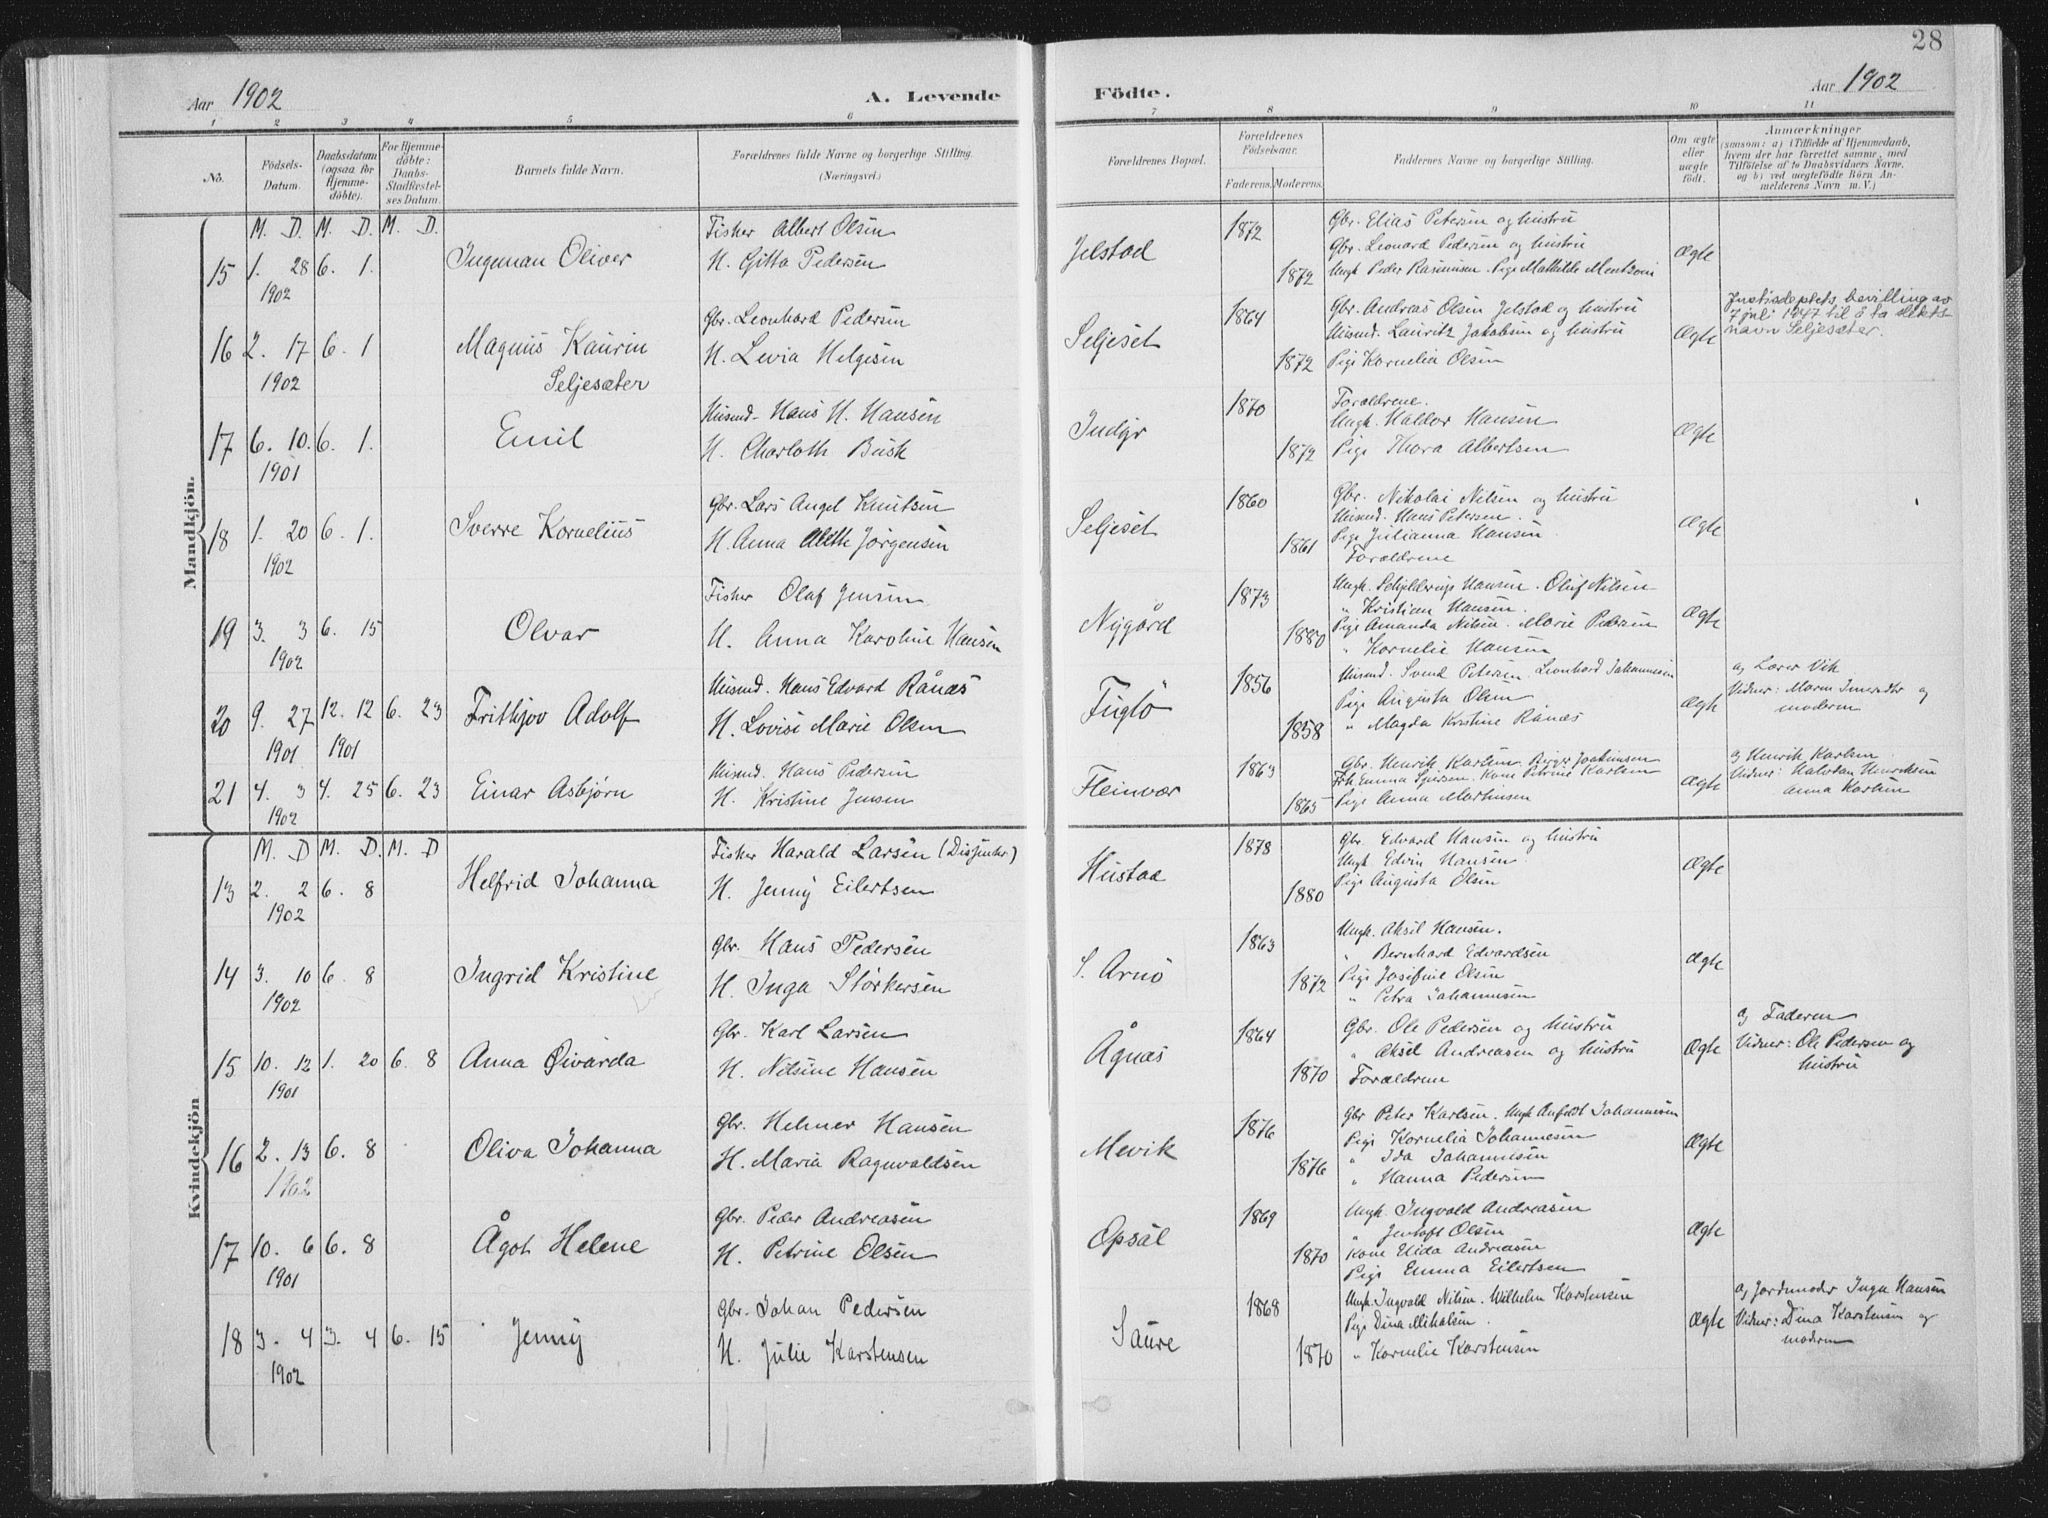 28
Aar 1902
A. Levende
Födte.
Aar 1902
1 2 3 4 5 6 7 8 9 10 11
No.
Födsels-
Datum.
Daabsdatum
(ogsaa for
Hjemme-
döbte).
For Hjemme-
döbte:
Daabs-
Stadfæstel-
ses Datum.
Barnets fulde Navn.
Forældrenes fulde Navne og borgerlige Stilling.
(Næringsvei.)
Forældrenes Bopæl.
Forældrenes
Födselsaar.
Faderens. Moderens.
Faddernes Navne og borgerlige Stilling.
Om ægte
eller
uægte
födt.
Anmærkninger
(saasom: a) i Tilfælde af Hjemmedaab,
hvem der har forrettet samme, med
Tilföielse af to Daabsvidners Navne.
og b) ved uægtefödte Börn An-
melderens Navn m. V.)
Mandkjön.
M. D. M. D. M. D.
15 1. 28 6. 1.
1902
Ingeman Oliver
Fisker Albert Olsen
H. Gitta Pedersen
Jelstad
1872
1872
Gbr. Elias Petersen og hustru
Gbr. Leonard Pedersen og hustru
Ungk. Peder Rasmusen. Pige Mathilde Mentzoni
Ægte
16 2. 17 6. 1
1902
Magnus Kaurin
Seljesæter
Gbr. Leonhard Pedersen
H. Levia Helgesen
Seljeset
1864
1872
Gbr. Andreas Olsen Jelstad og hustru
Husmd. Lauritz Jakobsen og hustru
Pige Kornelia Olsen
Ægte
Justisdeptets bevilling av
7 juli 1947 til å ta slekts-
navn Seljesæter.
17 6. 10. 6. 1.
1901
Emil
Husmd. Hans H. Hansen
H. Charloth Busk
Indyr
1870
1872
Forældrene.
Ungk. Haldor Hansen
Pige Thora Albertsen
Ægte
18 1. 20 6. 1.
1902
Sverre Kornelius
Gbr. Lars Angel Knutsen
H. Anna Aleth Jørgensen
Seljeset
1860
1861
Gbr. Nikolai Nilsen og hustru
Husmd. Hans Petersen.
Pige Julianna Hansen.
Forældrene
Ægte
19 3. 3 6. 15
1902
Olvar
Fisker Olaf Jensen
H. Anna Karoline Hansen
Nygård
1873
1880
Ungk. Schjelderup Hansen. Oluf Nilsen
" Kristian Hansen.
Pige Amanda Nilsen. Marie Pedersen
" Kornelie Hansen
Ægte
20 9. 27 12. 12 6. 23
1901 1901
Frithjov Adolf
Husmd. Hans Edvard Rånæs
H. Lovise Marie Olsen
Fuglö
1856
1858
Husmd. Svend Petersen. Leonhard Johannesen
Pige Augusta Olsen
" Magda Kristine Rånæs
Ægte
af Lærer Vik
Vidner: Maren og
moderen
21 4. 3 4. 25 6. 23
1902
Einar Asbjørn
Husmd. Hans Pedersen
H. Kristine Jensen
Fleinvær
1863
1865
Gbr. Henrik Karlsen. Birger Joakimsen
Frk. Emma Kone Petrine Karlsen
Pige Anna Martinsen
Ægte
af Henrik Karlsen
Vidner: Halvdan Henriksen
Anna Karlsen
Kvindekjön
M. D M. D. M. D
13 2. 2 6. 8
1902
Helfrid Johanna
Fisker Harald Larsen (Dissenter)
H. Jenny Eilertsen
Hustad
1878
1880
Gbr. Edvard Hansen og hustru
Ungk. Edvin Hansen.
Pige Augusta Olsen
Ægte
14 3. 10 6. 8
1902
Ingrid Kristine
Gbr. Hans Pedersen
H. Inga Størkersen
S. Arnö
1863
1872
Ungk. Aksil Hansen.
" Bernhard Edvardsen
Pige Josefine Olsen
" Petra Johannesen
Ægte
15 10. 12 1. 20 6. 8
1901
Anna Øivarda
Gbr. Karl Larsen
H. Nilsine Hansen
Ågnæs
1864
1870
Gbr. Ole Pedersen og hustru
" Aksel Andreasen og hustru
Forældrene
Ægte
af Faderen
Vidner: Ole Pedersen og
hustru
16 2. 13 6. 8
1902
Oliva Johanna
Gbr. Helmer Hansen
H. Maria Ragnvaldsen
Mevik
1876
1876
Gbr Peter Karlsen. Ungk Anfeldt Johannesen
Pige Kornelia Johannesen
" Ida Johannesen
" Hanna Pedersen
Ægte
17 10. 6 6. 8
1901
Ågot Helene
Gbr. Peder Andreasen
H. Petrine Olsen
Opsal
1869
1870
Ungk. Ingvald Andreasen
" Jentoft Olsen
Kone Elida Andreasen
Pige Emma Eilertsen
Ægte
18 3. 4 3. 4 6. 15
1902
Jenny
Gbr. Johan Pedersen
H. Julie Karstensen
Saure
1868
1870
Ungk. Ingvald Nilsen. Wilhelm Karstensen
Pige Dina Mikalsen.
" Kornelie Karstensen
Ægte
af Jordmoder Inga Hansen
Vidner: Dina Karstensen og
moderen